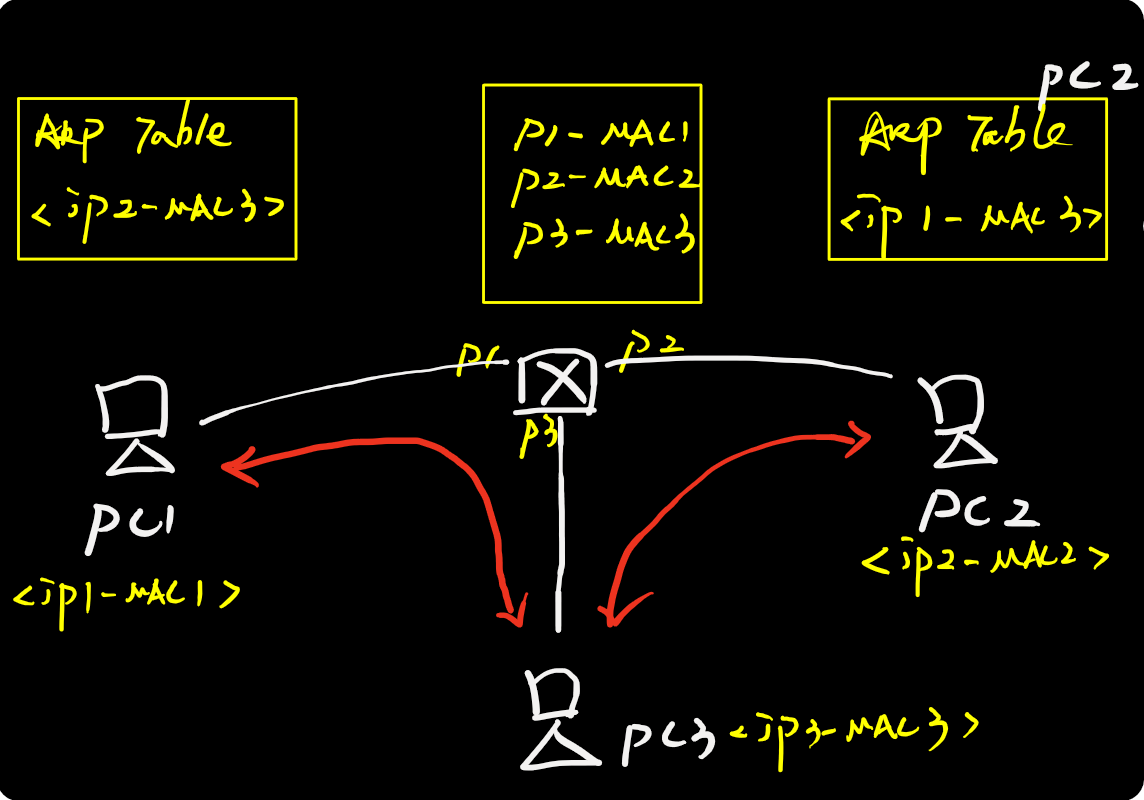 PC2
ARP Table
<ip2-MAC3>
P1-MAC1
P2-MAC2
P3-MAC3
ARP Table
<ip1-MAC3>
P1
P2
P3
PC1
<ip1-MAC1>
PC2
<ip2-MAC2>
PC3 <ip3-MAC3>